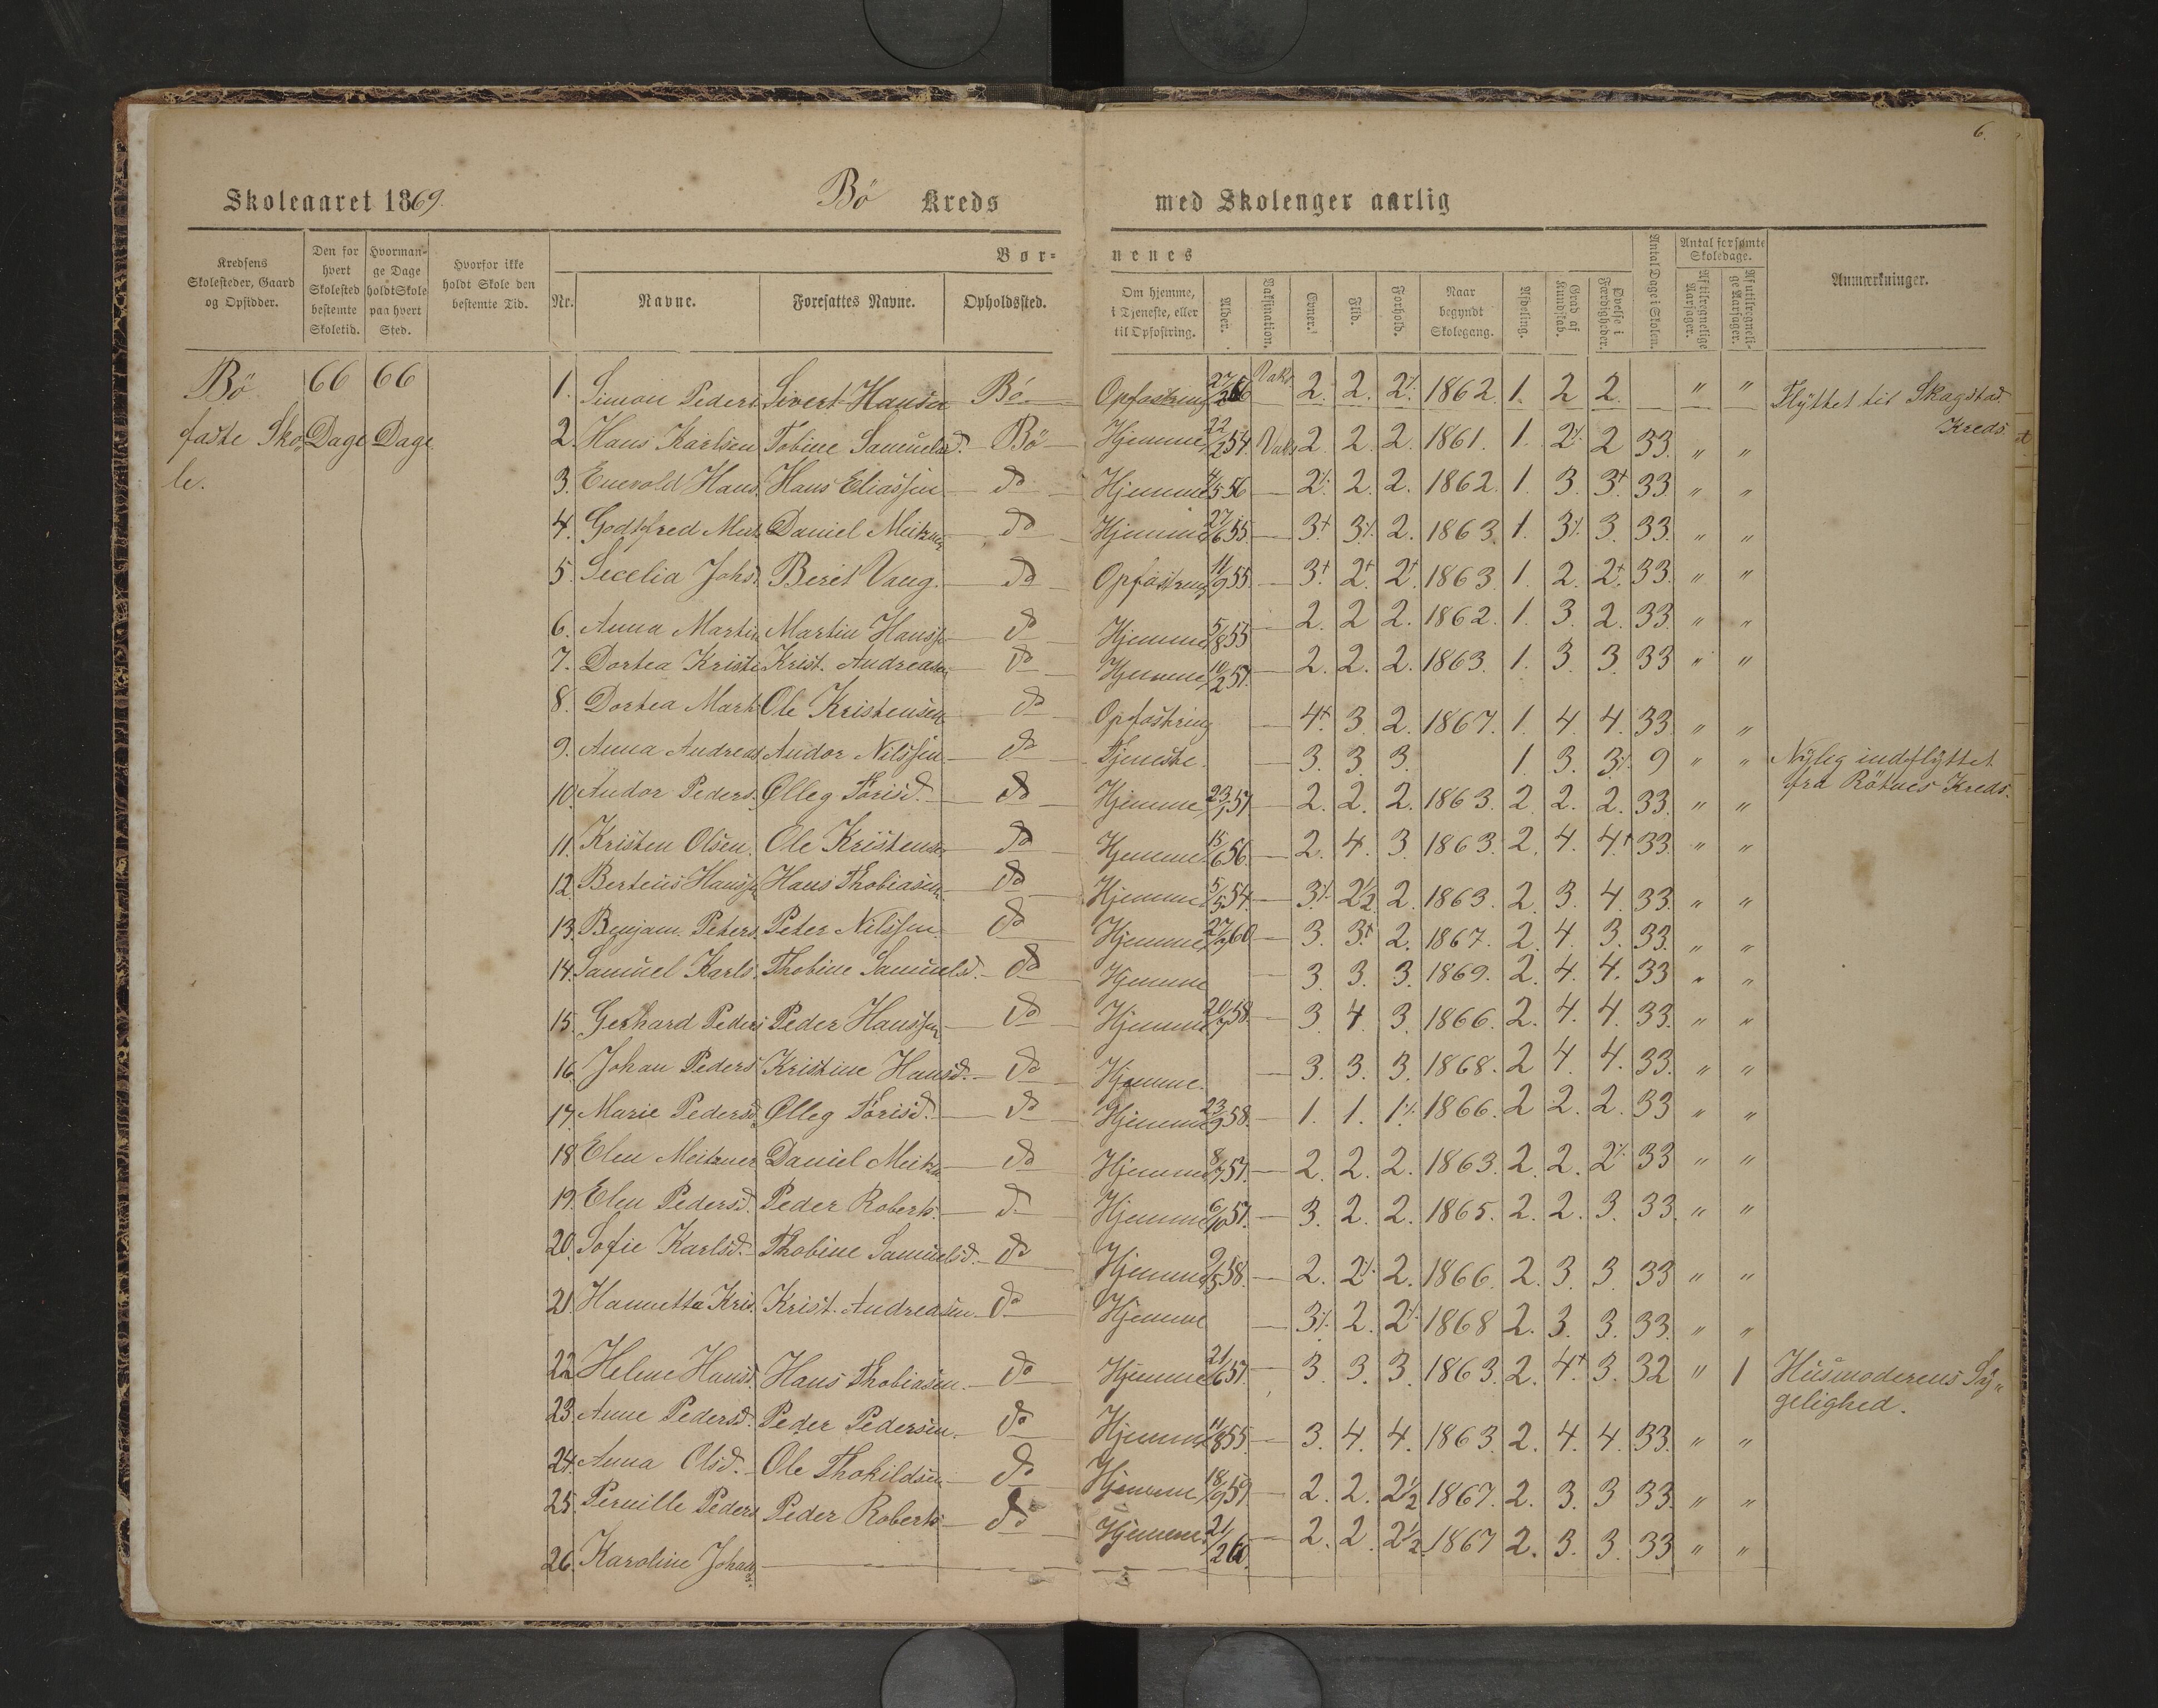 6.
Skoleaaret 1869. Bö Kreds med Skolenger aarlig
Kredsens Skolesteder, Gaard og Opsidder.
Den for hvert Skolested bestemte Skoletid.
Hvormange Dage holdt Skole paa hvert Sted.
Hvorfor ikke holdt Skole den bestemte Tid.
Bør- nenes
Nr. Navne. Foresattes Navne. Opholdssted.
Om hjemme, i Tjeneste, eller til Opfostring.
Alder. Vaksination. Evner. Flid. Forhold.
Naar begyndt Skolegang.
Afdeling. Grad af Kundskab. Øvelse i Færdigheder. Antal Dage i Skolen.
Antal forsømte Skoledage.
Af tilregnelige Aarsager. Af utilregnelige Aarsager.
Anmærkninger.
Bö 66 66
faste Sko, Dage Dage
le.
1. Simon Peders Sivert Hansen Bö Opfostring Vaks. 2. 2. 2⁒ 1862. 1. 2 2. " " Flyttet til Skagstad Kreds
2. Hans Karlsen Tobine Samuelsd. Bö Hjemme 22/2 54. Vaks 2 2. 2. 1861. 1. 2⁒ 2 33. " "
3. Enevold Hans. Hans Eliassen do Hjemme 4/5 56 — 2⁒ 2. 2. 1862. 1. 3. 3+ 33. " "
4. Godtfred Meit Daniel Meitzner do Hjemme 27/6 55. — 3+ 3⁒ 2. 1863. 1. 3⁒ 3. 33. " "
5. Secelia Johsd. Beret Vang. do Opfostring 11/9 55. — 3+ 2+ 2+ 1863 1. 2. 2+. 33. " "
6. Anna Martin Martin Hanss do Hjemme 5/8 55 — 2. 2 2. 1862. 1. 3. 2. 33. " "
7. Dortea Kristi Krist. Andreasen do Hjemme 10/2 57. — 2. 2. 2. 1863. 1. 3. 3. 33 " "
8. Dortea Mart Ole Kristensen do Opfostring — 4+ 3. 2. 1867. 1. 4. 4. 33. " "
9. Anna Andreas Andor Nilssen do Tjeneste. — 3. 3. 3. 1. 3. 3⁒ 9 " " Nylig indflyttet fra Rötnes Kreds.
10. Andor Peders. Olleg Torisd. do Hjemme 23/1 57. — 2. 2. 2. 1863. 2. 2. 2. 33. " "
11. Kristen Olsen. Ole Kristens do Hjemme 15/6 56. — 2. 4. 3. 1863. 2. 4. 4+ 33. " "
12. Berteus Hanss Hans Thobiasen. do Hjemme 5/5 54. — 3⁒ 2½ 2. 1863. 2. 3. 4. 33. " "
13. Benjam. Peters. Peter Nilssen. do Hjemme 60 — 3. 3+ 2. 1867. 2. 4. 3. 33. " "
14. Samuel Karls. Thobine Samuelsd. do Hjemme — 3. 3. 3. 1869. 2. 4. 4. 33 " "
15. Gerhard Peders Peder Hanssen do Hjemme 20/7 58. — 3. 4 3. 1866. 2. 4. 4. 33. " "
16. Johan Peders Kristine Hansd. do Hjemme. — 3. 3. 3. 1868. 2 4. 4. 33. " "
17. Marie Pedersd. Olleg Torisd. do Hjemme 23/9 58. — 1. 1. 1⁒ 1866. 2 2. 2. 33 " "
18. Elen Meitzner Daniel Meitzn do Hjemme 8/7 57. — 2. 2. 2. 1863. 2. 2. 2⁒ 33 " "
19. Elen Pedersd. Peder Roberts. do Hjemme 6/10 57. — 3. 2. 2. 1865. 2. 2. 3. 33. " "
20. Sofie Karlsd. Thobine Samuelsd. do Hjemme 9/5 58. — 2. 2⁒ 2. 1866. 2. 3. 3. 33 " "
21. Hannetta Kris. Krist. Andreasen do Hjemme — 3⁒ 2. 2⁒ 1868 2. 3. 3. 33. " "
22. Helene Hansd. Hans Thobiasen. do Hjemme 21/6 57. — 3. 3. 3. 1863. 2. 4+ 3. 32 " 1 Husmoderens Sy„ gelighed.
23. Anne Pedersd. Peder Pedersen. do Hjemme 11/8 55. — 3. 4. 4. 1863. 2. 4. 4. 33. " "
24. Anna Olsd. Ole Thokildsen do Hjemme 18/9 59. — 2. 2. 2½ 1867. 2. 3. 3 33. " "
25. Pernille Peders Peder Roberts do Hjemme. 21/2 60. — 2. 2. 2½ 1867 2. 3. 3. 33 " "
26. Karoline Johan